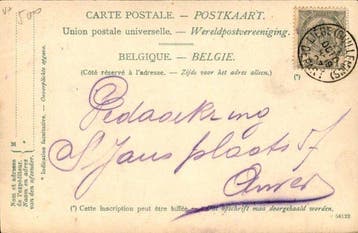 5 000
CARTE POSTALE. - POSTKAART.
Union postale universelle. - Wereldpostvereeniging.
BELGIQUE. - BELGIE.
(Côté réservé à l'adresse. - Zijde voor het adres alleen.)
LIÈGE (GUILLEMINS)
* Indication facultative. - Onverplichte opgave.
M
Nom et adresse
de l'expéditeur.
Naam en adres
van den afzender.
S Jans plaats 57
Anvers
(*) Cette inscription peut être biffée. - Dit opschrift mag doorgehaald worden.